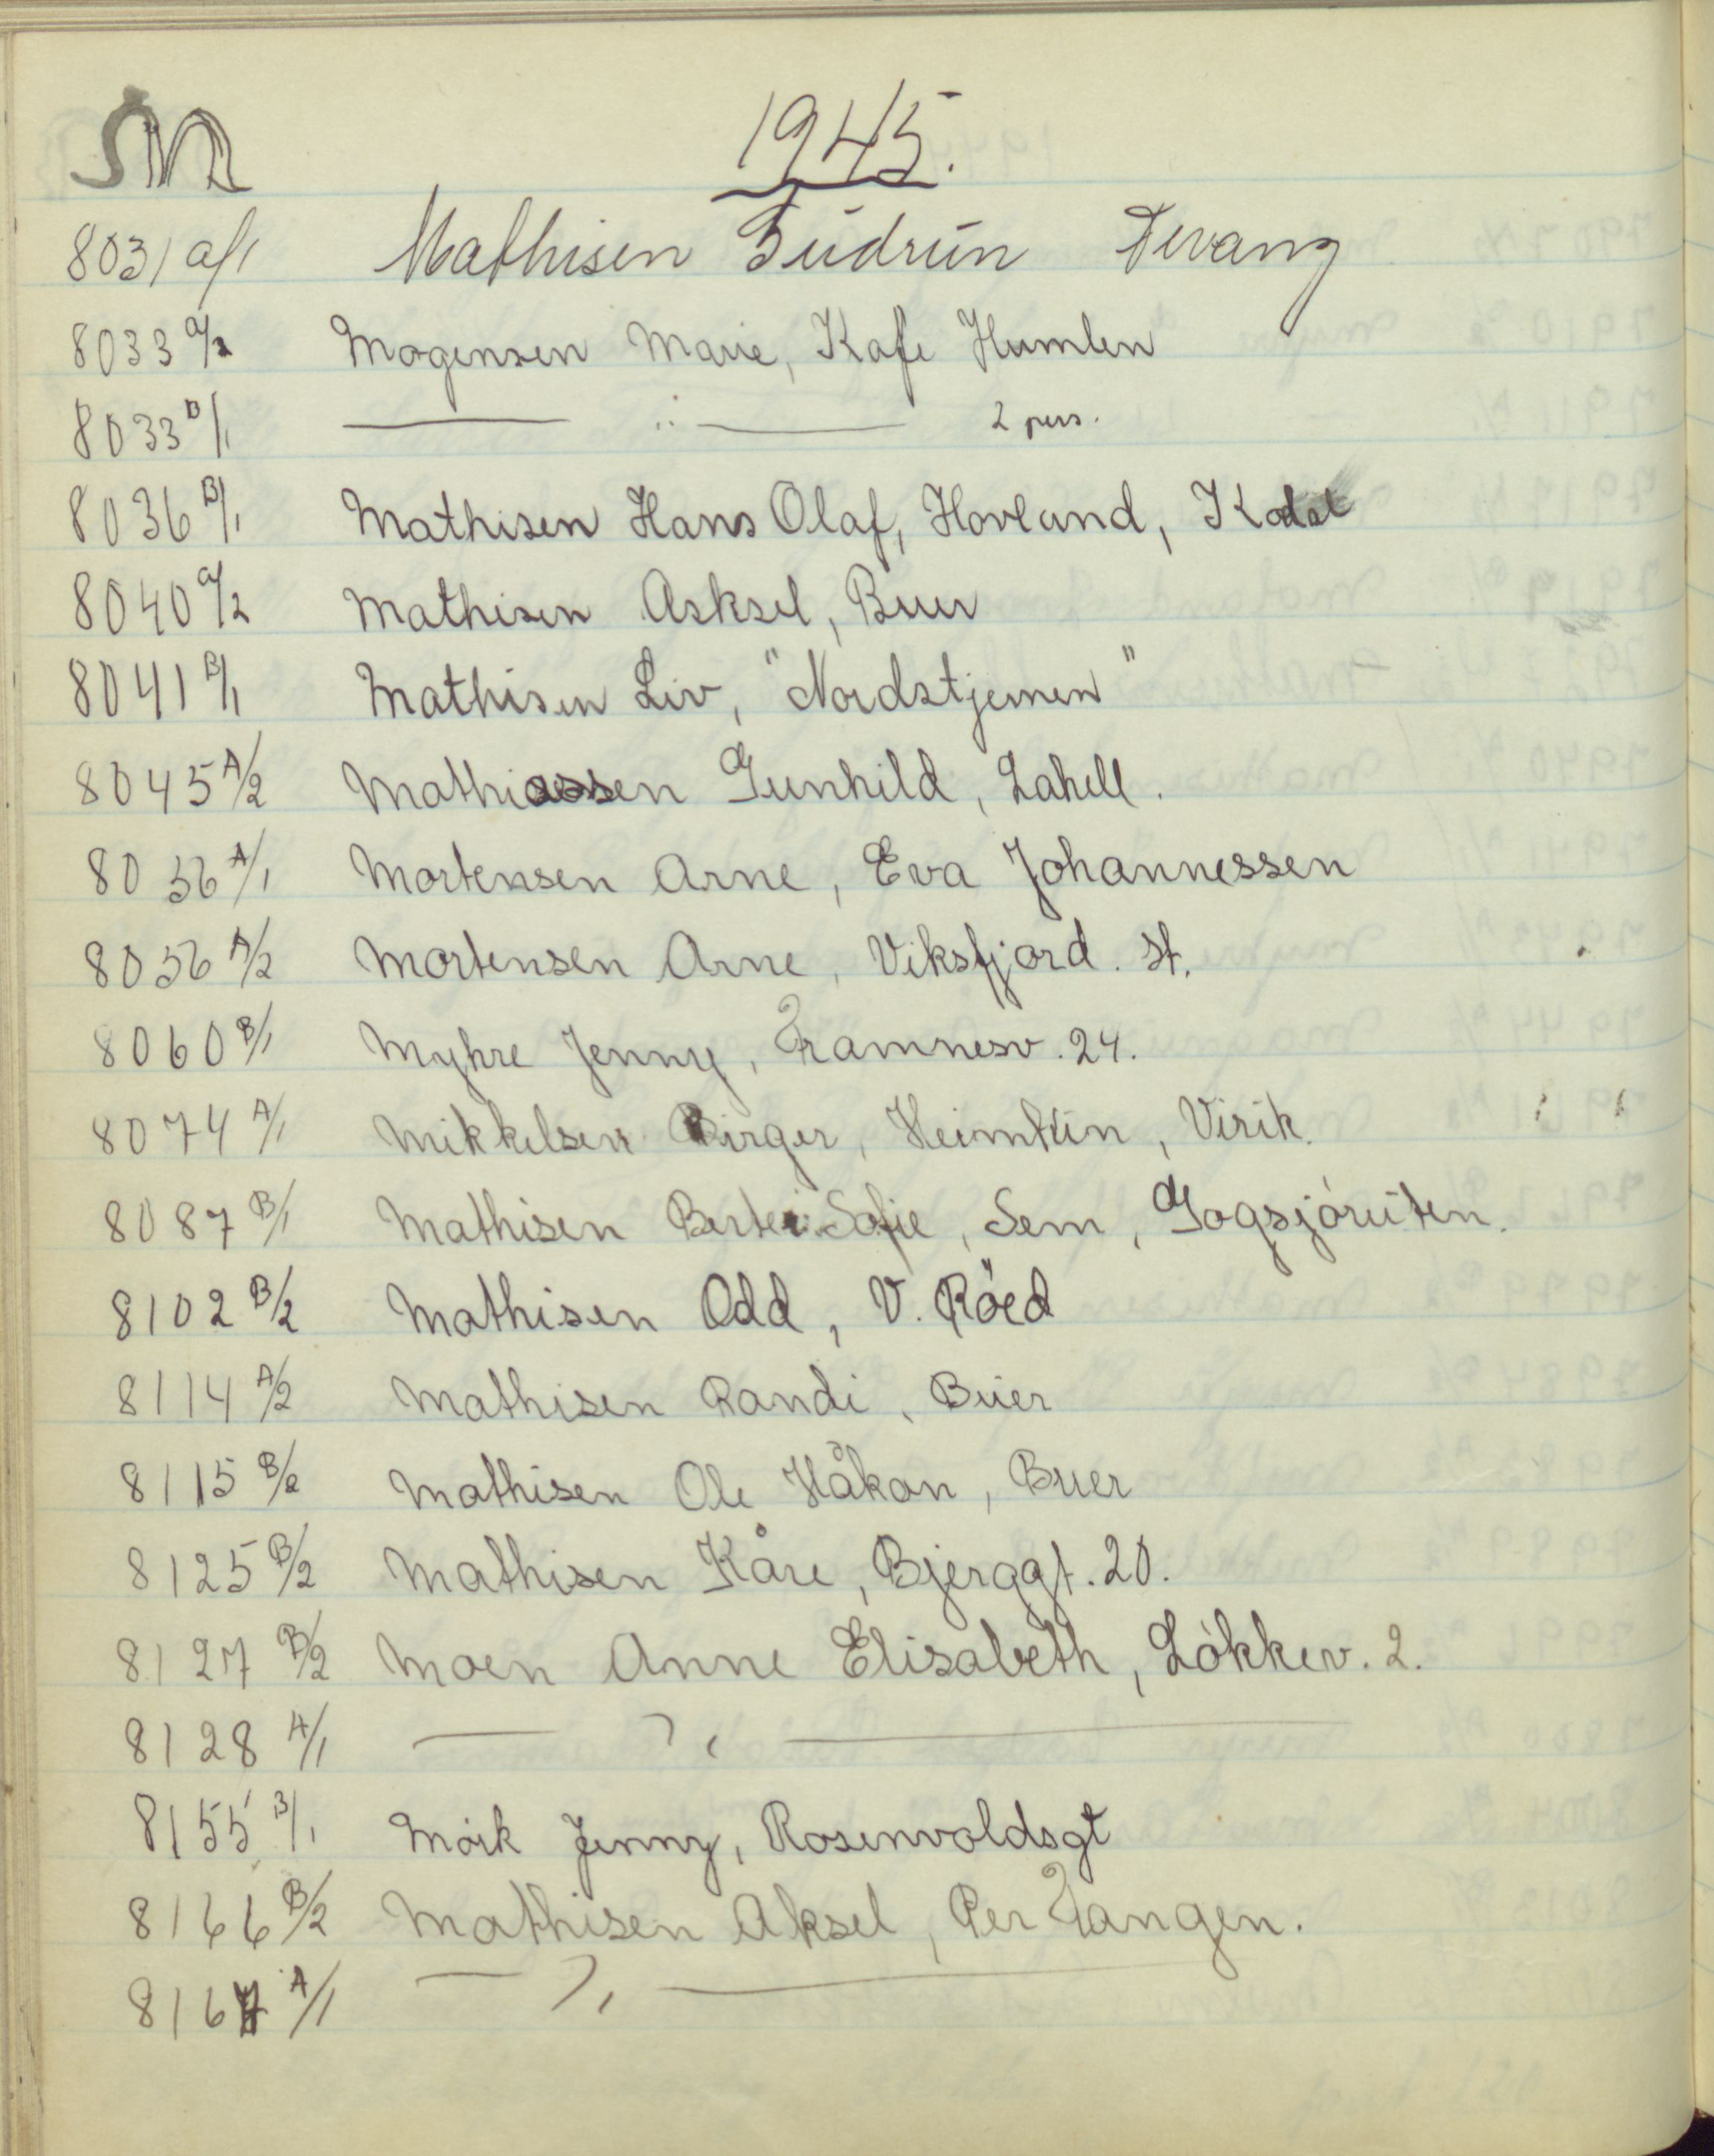 M 1945.
8031 a/1 Mathisen Gudrun Tevang
8033 a/2 Mogensen Marie, Kafe Humlen
8033 B/1 —— " —— 2 pers.
8036 B/1 Mathisen Hans Olaf, Hovland, Kodal
8040 a/2 Mathisen Asksel, Buer
8041 B/1 Mathisen Liv, "Nordstjernen"
8045 A/2 Mathiassen Gunhild, Lahell.
8056 A/1 Mortensen Arne, Eva Johannessen
8056 A/2 Mortensen Arne, Viksfjord. St.
8060 B/1 Myhre Jenny, Framnesv. 24.
8074 A/1 Mikkelsen Birger, Heimtun, Virik.
8087 B/1 Mathisen Berte Sofie, Sem, Gogsjøruten.
8102 B/2 Mathisen Odd, V. Røed
8114 A/2 Mathisen Randi, Buer
8115 B/2 Mathisen Ole Håkon, Buer
8125 B/2 Mathisen Kåre, Bjerggt. 20.
8127 B/2 Moen Anne Elisabeth, Løkkev. 2.
8128 A/1 —— " ——
8155 B/1 Mørk Jenny, Rosenvoldsgt
8166 B/2 Mathisen Aksel, Per Tangen.
8167 A/1 —— " ——